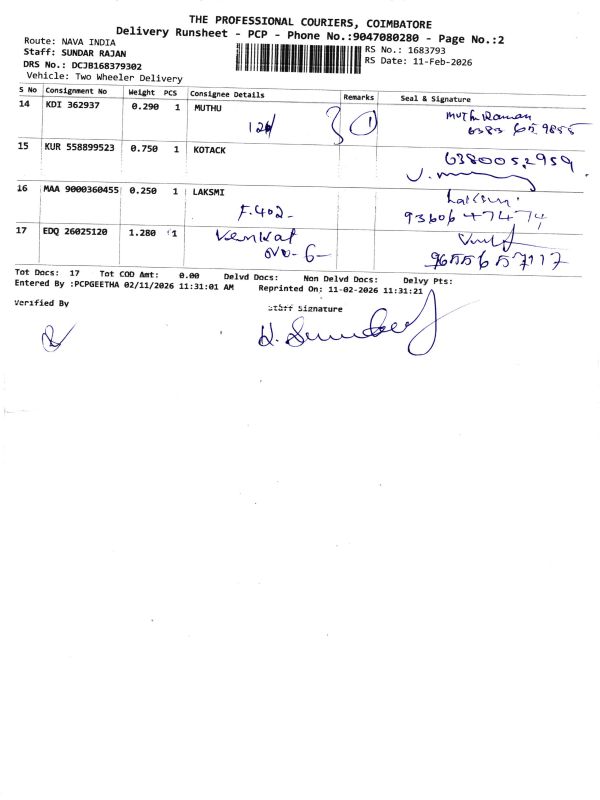 THE PROFESSIONAL COURIERS, COIMBATORE
Delivery Runsheet - PCP - Phone No.:9047080280 - Page No.:2
Route: NAVA INDIA
RS No.: 1683793
Staff: SUNDAR RAJAN
RS Date: 11-Feb-2026
DRS No.: DCJB168379302
Vehicle: Two Wheeler Delivery
S No Consignment No Weight PCS Consignee Details Remarks Seal & Signature
14 KDI 362937 0.290 1 MUTHU
1 Muthuraman
15 KUR 558899523 0.750 1 KOTACK 6380052959
16 MAA 9000360455 0.250 1 LAKSMI Laksmi
F.402- 9360647474
17 EDQ 26025120 1.280 1 Venkat
NO-6- 9655657117
Tot Docs: 17 Tot COD Amt: 0.00 Delvd Docs: Non Delvd Docs: Delvy Pts:
Entered By :PCPGEETHA 02/11/2026 11:31:01 AM Reprinted On: 11-02-2026 11:31:21
Verified By
Staff Signature